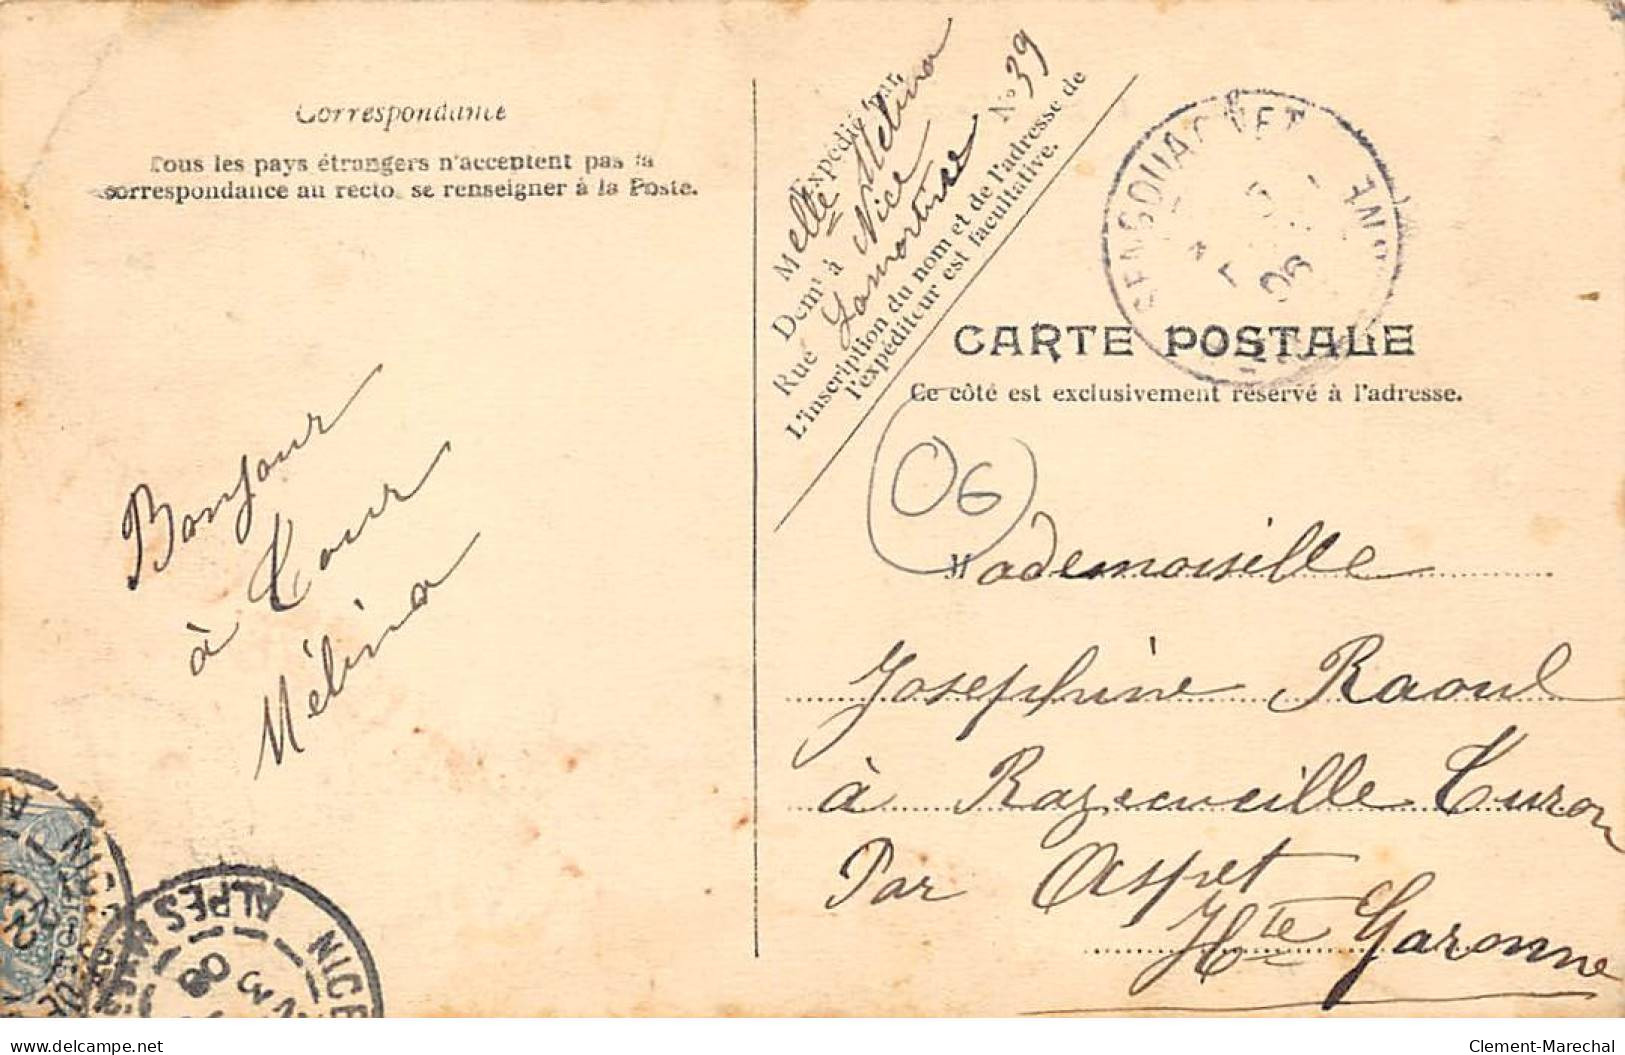 Correspondance
Tous les pays étrangers n'acceptent pas la
correspondance au recto, se renseigner à la Poste.
Bonjour
à Tour
Mélina
Expédié par
Melle Mélina
Demt à Nice
Rue Lamartine No 39
L'inscription du nom et de l'adresse de
l'expéditeur est facultative.
CARTE POSTALE
Ce côté est exclusivement réservé à l'adresse.
06
Mademoiselle
Josephine Raoul
à Razecueille Turon
Par Aspet
Hte Garonne
NICE
ALPES
delcampe.net
Clement-Marechal